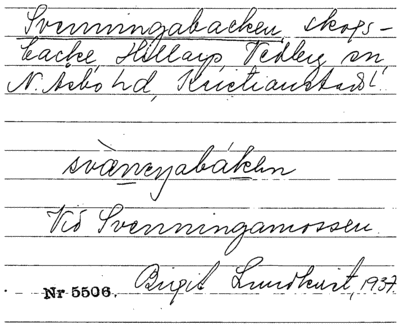 Svenningabacken, skogs-
backe, Hillarp Vedby sn,
N. Åsbo hd, Kristianstads l
svàneŋabákən
Vid Svenningamossen.
Nr 5506. Birgit Lundkvist, 1937.